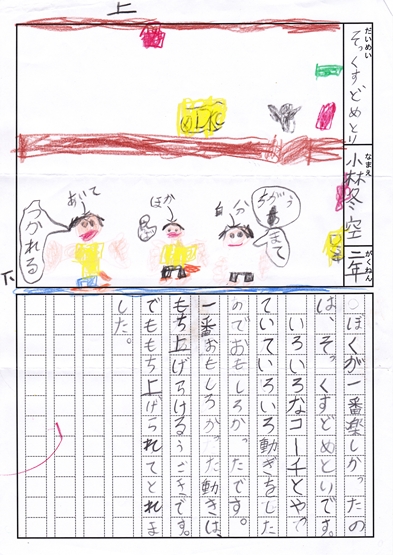 上
だいめい
そっくすどめとり
なまえ
小林冬空
がくねん
年
ちがう
まて
自分
ほか
あいて
つかれる
下
ぼくが一番楽しかったの
は、そっくすどめとりです。
いろいろなコーチとやっ
ていていろいろ動きをした
のでおもしろかったです。
一番おもしろかった動きは、
もち上げらけるうごきです。
でももち上げられてとれま
した。